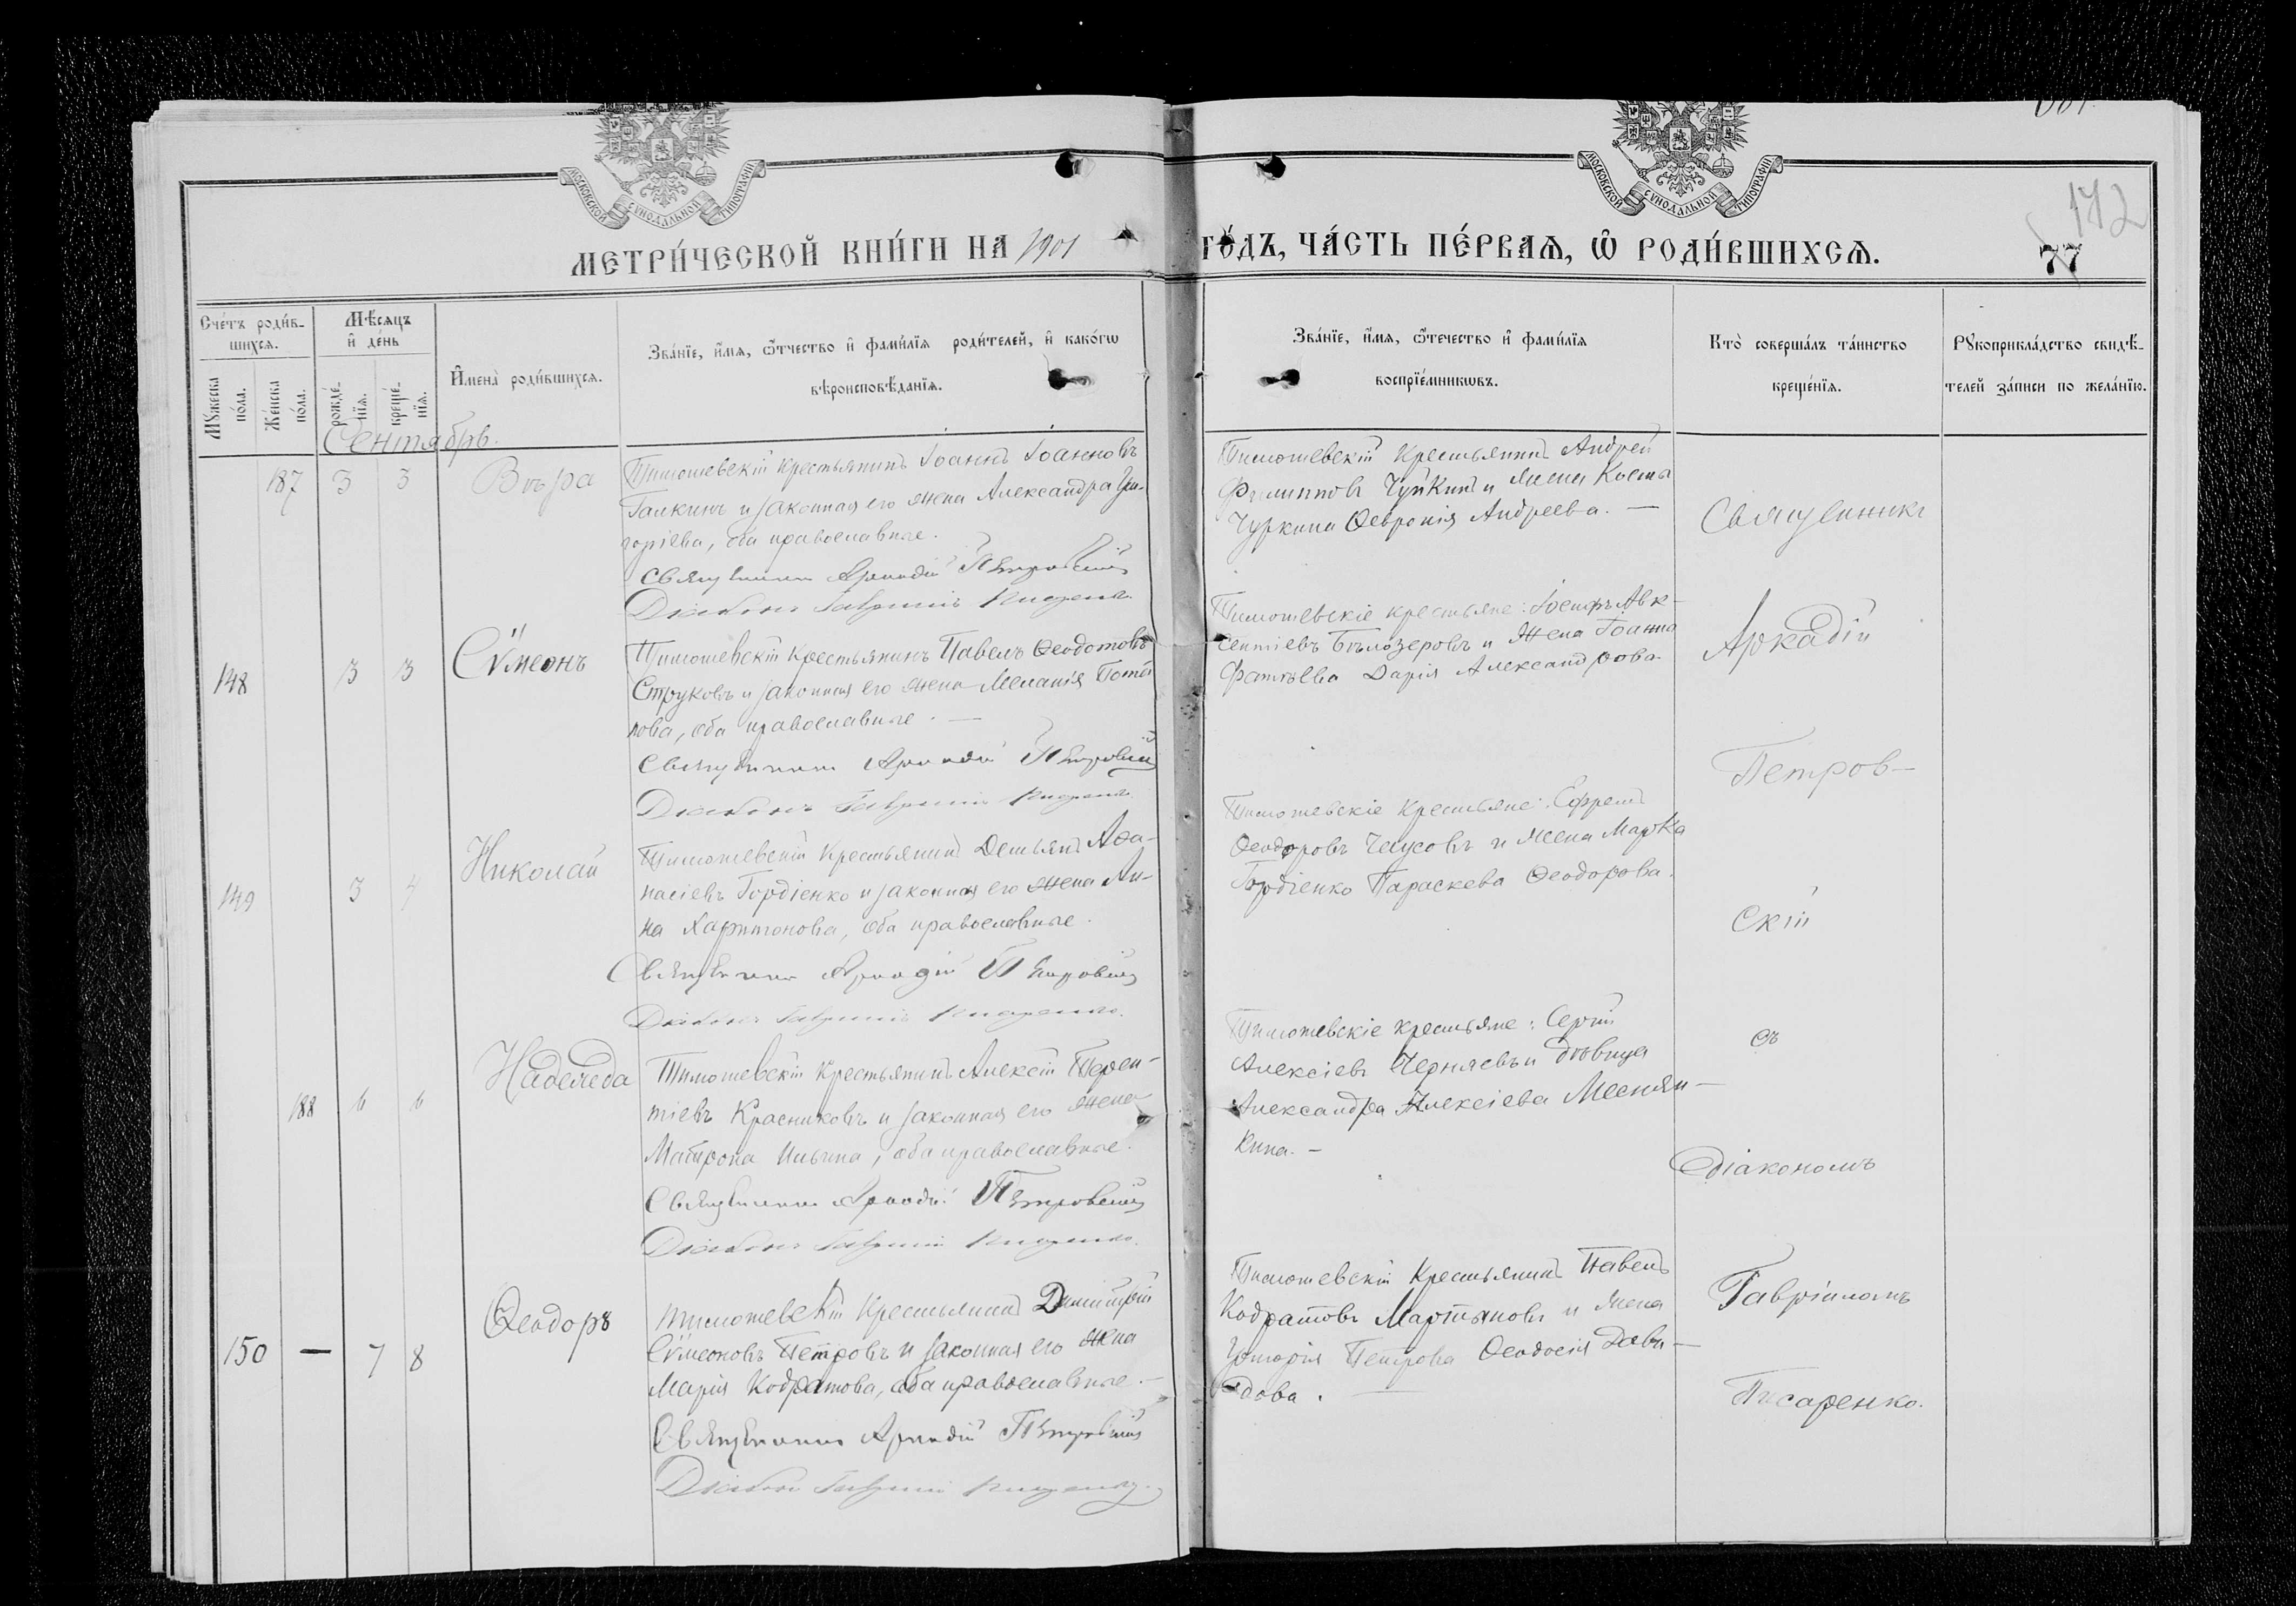 МОСКОВСКОЙ СУНОДАЛЬНОЙ ТИПОГРАФІИ
МОСКОВСКОЙ СУНОДАЛЬНОЙ ТИПОГРАФІИ
172
77
МЕТРИ́ЧЕСКОЙ КНИ́ГИ НА 1901 ГО́ДЪ, ЧА́СТЬ ПЕ́РВАѦ, Ѡ҆ РОДИ́ВШИХСѦ.
Сче́тъ роди́в-
шихсѧ.
Мꙋ́жеска по́ла.
Же́нска по́ла.
Мѣ́сѧцъ и҆ де́нь
рожде́-
нїѧ.
креще́-
нїѧ.
И҆мена̀ роди́вшихсѧ.
Зва́нїе, и҆́мѧ, ѻ҆́тчество и҆ фами́лїѧ роди́телей, и҆ како́гѡ
вѣроисповѣ́данїѧ.
Зва́нїе, и҆́мѧ, ѻ҆́течество и҆ фами́лїѧ
воспрїе́мникѡвъ.
Кто̀ соверша́лъ та́инство
креще́нїѧ.
Рꙋкоприкла́дство свидѣ́-
телей за́писи по жела́нїю.
Сентябрь.
187 3 3 Вѣра
Тимошевскій крестьянинъ Іоаннъ Іоанновъ
Галкинъ и законная его жена Александра Гри-
горіева, оба православные.
Священникъ Аркадій Петровскій
Діаконъ Гавріилъ Писаренко.
Тимошевскій крестьянинъ Андрей
Филипповъ Чуркинъ и жена Косьмы
Чуркина Ѳевронія Андреева. —
148 3 3 Сѵмеонъ
Тимошевскій крестьянинъ Павелъ Ѳеодотовъ
Струковъ и законная его жена Меланія Пота-
пова, оба православные. —
Священникъ Аркадій Петровскій
Діаконъ Гавріилъ Писаренко.
Тимошевскіе крестьяне: Іосифъ Авк-
сентіевъ Бѣлозеровъ и жена Іоанна
Фатѣева Дарія Александрова.
149 3 4 Николай
Тимошевскій крестьянинъ Демьянъ Аѳа-
насіевъ Гордіенко и законная его жена Ан-
на Харитонова, оба православные.
Священникъ Аркадій Петровскій
Діаконъ Гавріилъ Писаренко.
Тимошевскіе крестьяне: Ефремъ
Ѳеодоровъ Чеусовъ и жена Марка
Гордіенко Параскева Ѳеодорова.
188 6 6 Надежда
Тимошевскій крестьянинъ Алексій Терен-
тіевъ Красниковъ и законная его жена
Матрона Ильина, оба православные.
Священникъ Аркадій Петровскій
Діаконъ Гавріилъ Писаренко.
Тимошевскіе крестьяне: Сергій
Алексіевъ Черняевъ и дѣвица
Александра Алексіева Меснян-
кина. —
150 — 7 8 Ѳеодоръ
Тимошевскій крестьянинъ Димитрій
Сѵмеоновъ Петровъ и законная его жена
Марія Кодратова, оба православные. —
Священникъ Аркадій Петровскій
Діаконъ Гавріилъ Писаренко.
Тимошевскій крестьянинъ Павелъ
Кодратовъ Мартыновъ и жена
Григорія Петрова Ѳеодосія Дави-
дова. —
Священникъ
Аркадій
Петров-
скій
съ
діакономъ
Гавріиломъ
Писаренко.